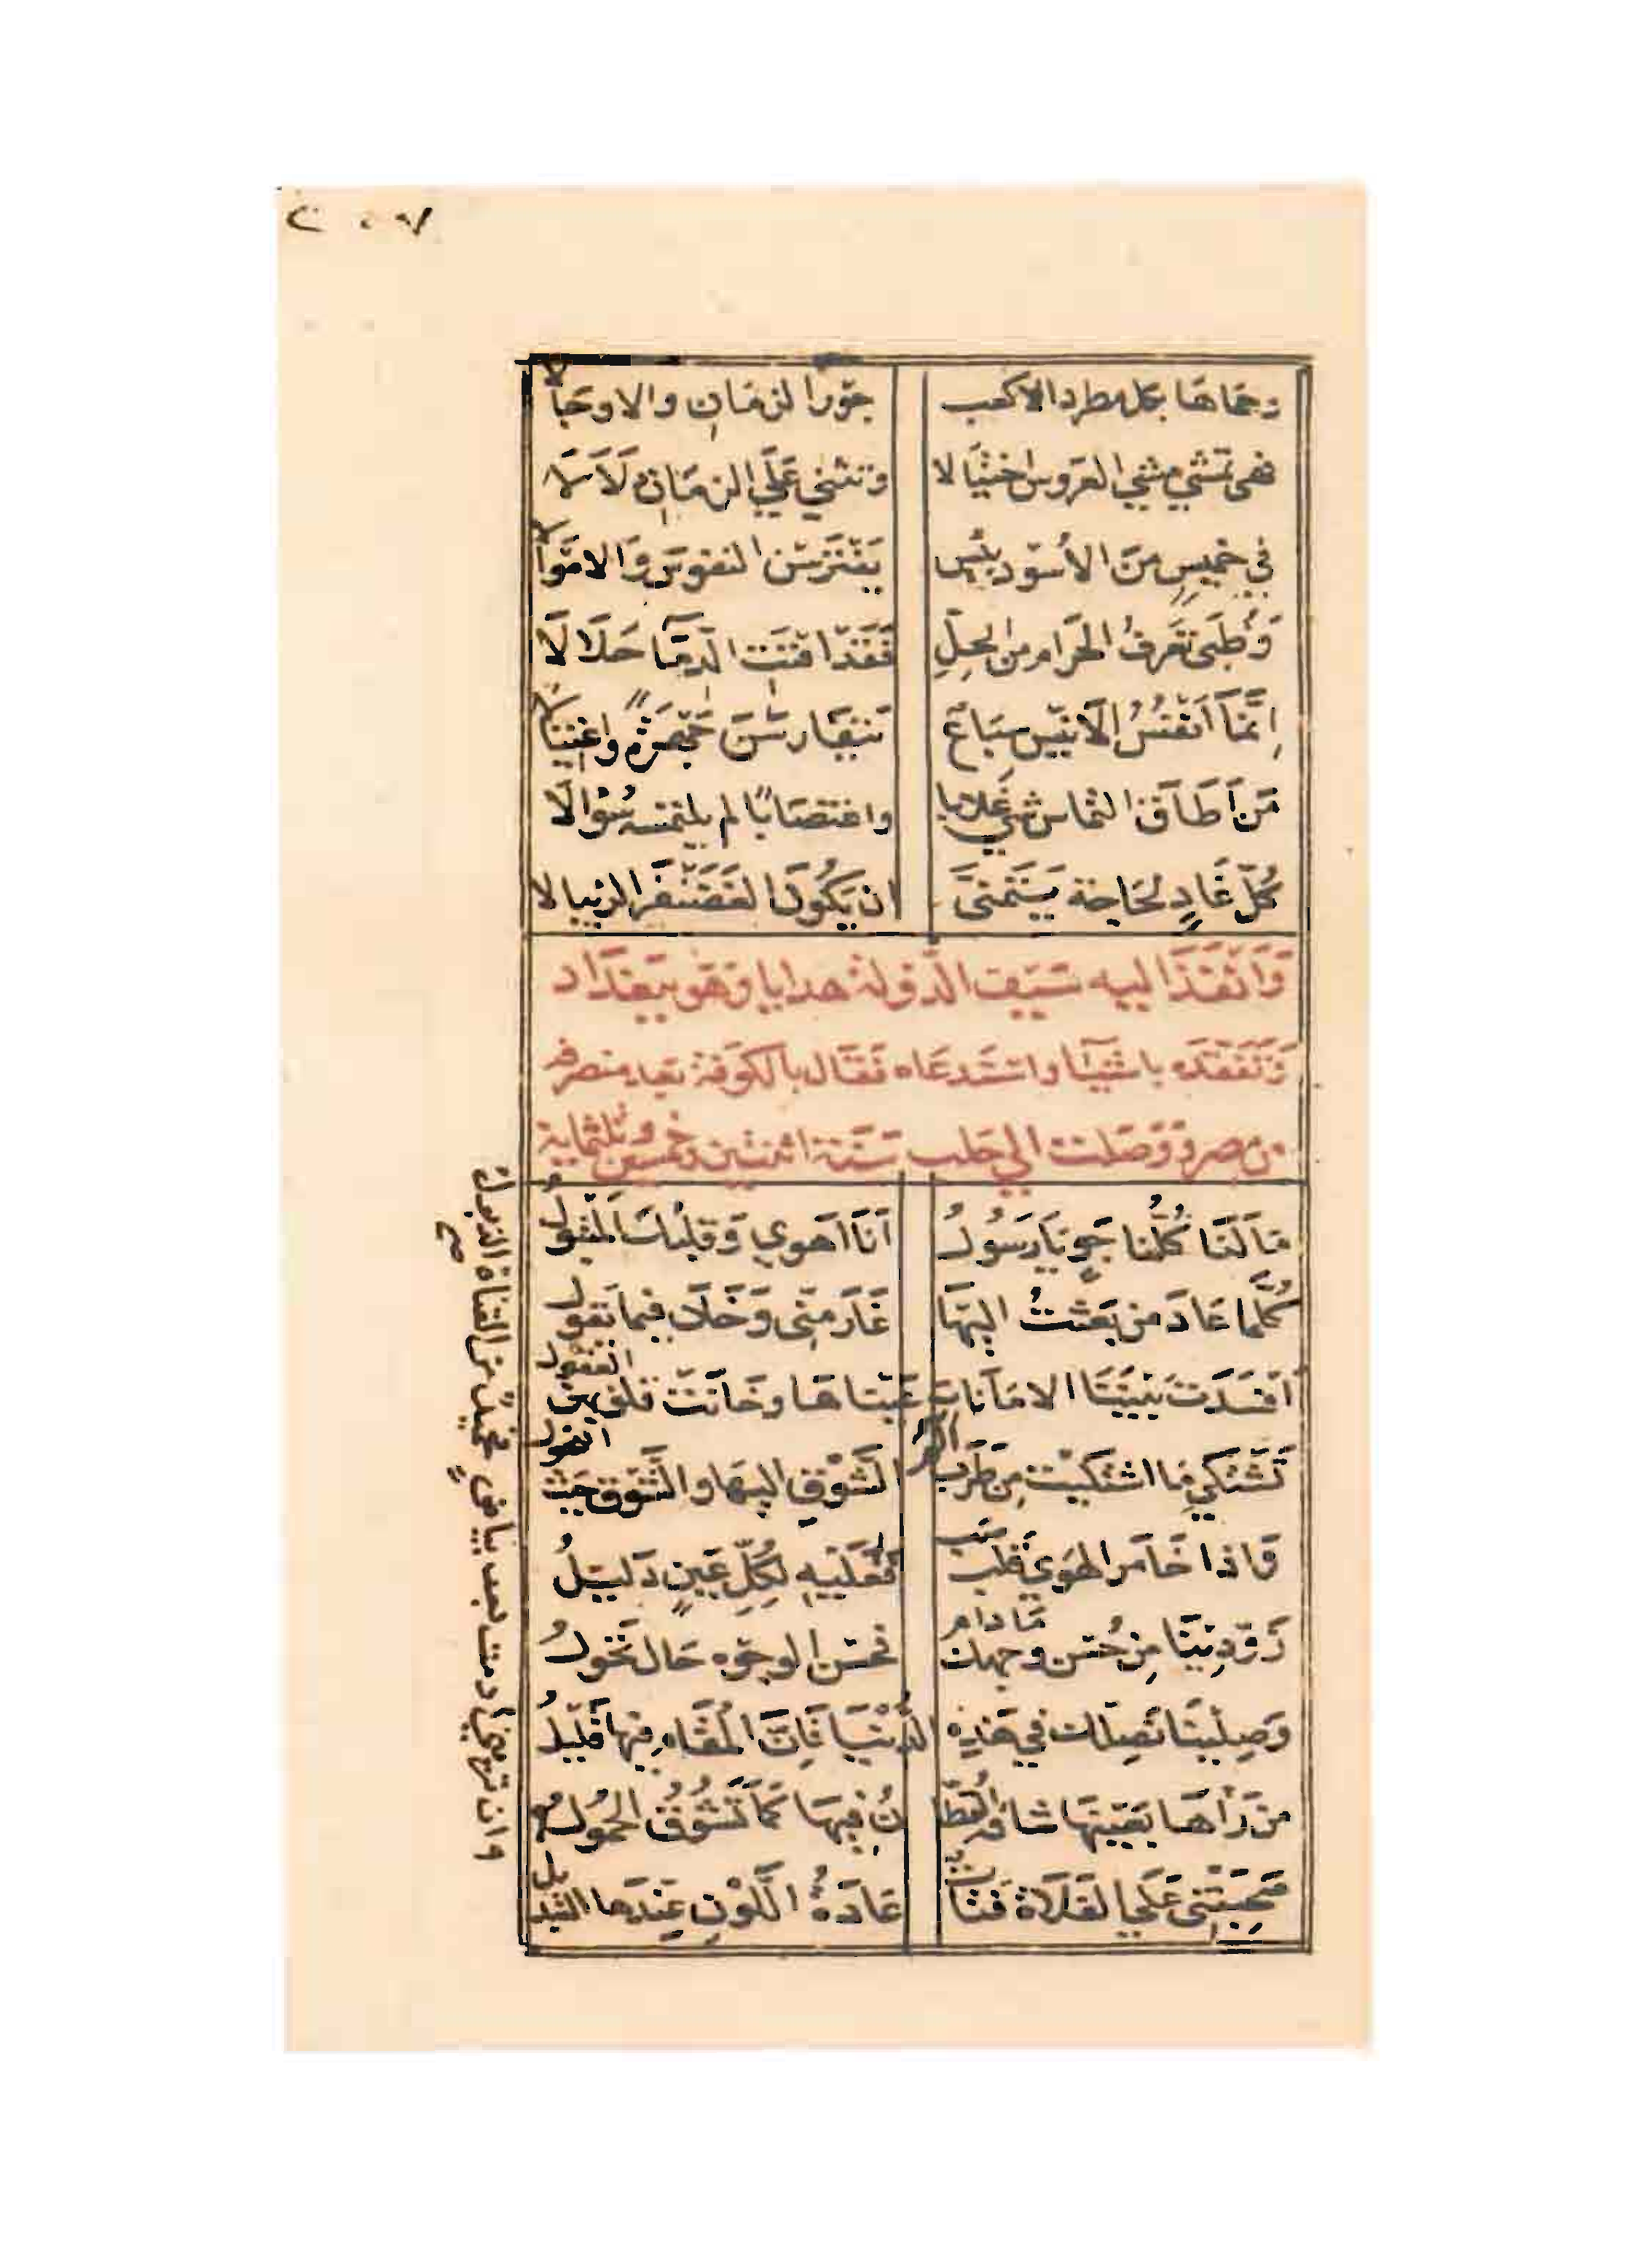 وحماها بكل مطرد الاكعب جَوْرَ الزمَانِ والاوجَالا
فهى تمشي مَشْيَ العَروس اختيَالا وتنثني عَلَى الزمَانِ دَلَالا
في خميسٍ مِنَ الأُسُود بئيس يَفْتَرِسْنَ النفوسَ وَالامْوَالا
وَظُبىً تعَرفُ الحَرَام من الحِلِّ فَقَدْ افنتِ الدِّمَآ حَلَالا
اِنَّمَا اَنْفُسُ الاَنيْسِ سبَاعٌ تتفَارسْنَ جَهْرَةً واغتيَالا
مَنْ اَطَاقَ التماسَ شَيْءٍ غلابا واغتصَابًا لم يلتمسه سُؤالا
كُلُّ غَادٍ لحَاجة يَتَمَنىَّ ان يَكُونَ الغَضَنْفَر الريبالا
وَاَنْفَذَ اليه سَيْف الدَّولة هدايا وَهوَ ببَغدَاد
وَتَفَقَّدَه باشيَآ واستَدعَاه فَقَال بالكوفة بَعد منصرفه
من مصر وَوَصَلت الي حَلب سَنَة اثنتين وخمسين وثلثماية
مَا لَنَا كُلُّنا جَوٍ يَا رَسُولُ اَنَا اَهوي وَقلبُكَ المتبُولُ
كُلَّما عَادَ من بَعَثتُ اليهَا غَارَ منّى وَخَانَ فيما يَقولُ
اَفسَدَتْ بَيْنَنَا الامَانَاتِ عَيْنَاهَا وخَانَتْ قلوبهنَّ العُقُولُ
تَشْتَكي مَا اشتكَيْت مِن طَرَب الشَّوْقِ اليهَا والشَّوْق حَيْث النحُول
وَاذا خَامَر الهَوي قَلبَ صَبٍّ فَعَلَيْهِ لكُلِّ عَينٍ دَليْلُ
زَوِّدِينَا مِن حُسْن وجهك مَا دام فحُسْن الوجُوه حَال تَحُولُ
وَصِلْيْنَا نَصِلْك في هَذِهِ الدُّنْيَا فَانَّ المُقَام فيْهَا قَلِيْلُ
مَن رَأهَا بعَيْنهَا شاقه القُطَّا نُ فيهَا كَمَا تَشُوْقُ الحُمُولُ
صَحِبَتْنِى عَلَى الفَلَاة فتَاةٌ عَادَةُ اللَّوْنِ عِندَهَا التبديل
وان تريني ادمت بعد بياضٍ فحميدٌ من القناة الذبول
صح